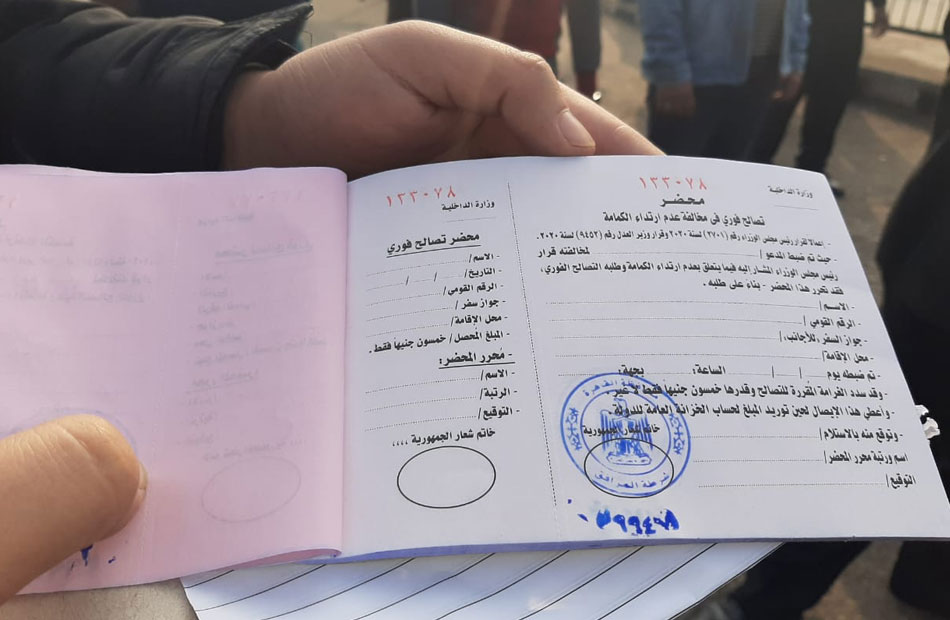 ١٣٣٠٧٨
وزارة الداخلية
محضر
تصالح فوري في مخالفة عدم ارتداء الكمامة
- إعمالا لقرار رئيس مجلس الوزراء رقم (٢٧٠١) لسنة ٢٠٢٠ وقرار وزير العدل رقم (٩٤٥٢) لسنة ٢٠٢٠.
حيث تم ضبط المدعو / لمخالفته قرار
رئيس مجلس الوزراء المشار اليه فيما يتعلق بعدم ارتداء الكمامة وطلبه التصالح الفوري،
فقد تحرر هذا المحضر - بناء على طلبه .
- الاسـم /
- الرقم القومي /
- جواز السفر للأجانب /
- محل الإقامة /
- تم ضبطه يوم / / الساعة. بجهة.
- وقد سدد الغرامة المقررة للتصالح وقدرها خمسون جنيهاً فقط لا غير .
- وأعطي هذا الإيصال لحين توريد المبلغ لحساب الخزانة العامة للدولة .
- وتوقع منه بالاستلام /
اسم ورتبة محرر المحضر /
التوقيع /
خاتم شعار الجمهورية
شرطة المرافق
١٣٣٠٧٨
وزارة الداخلية
محضر تصالح فوري
- الاسم /
- التاريخ / / /
- الرقم القومي /
- جواز سفر /
- محل الإقامة /
- المبلغ المُحصل / خمسون جنيهاً فقط .
- مُحرر المحضر :
- الاسم /
- الرتبة /
- التوقيع /
خاتم شعار الجمهورية ,,,,